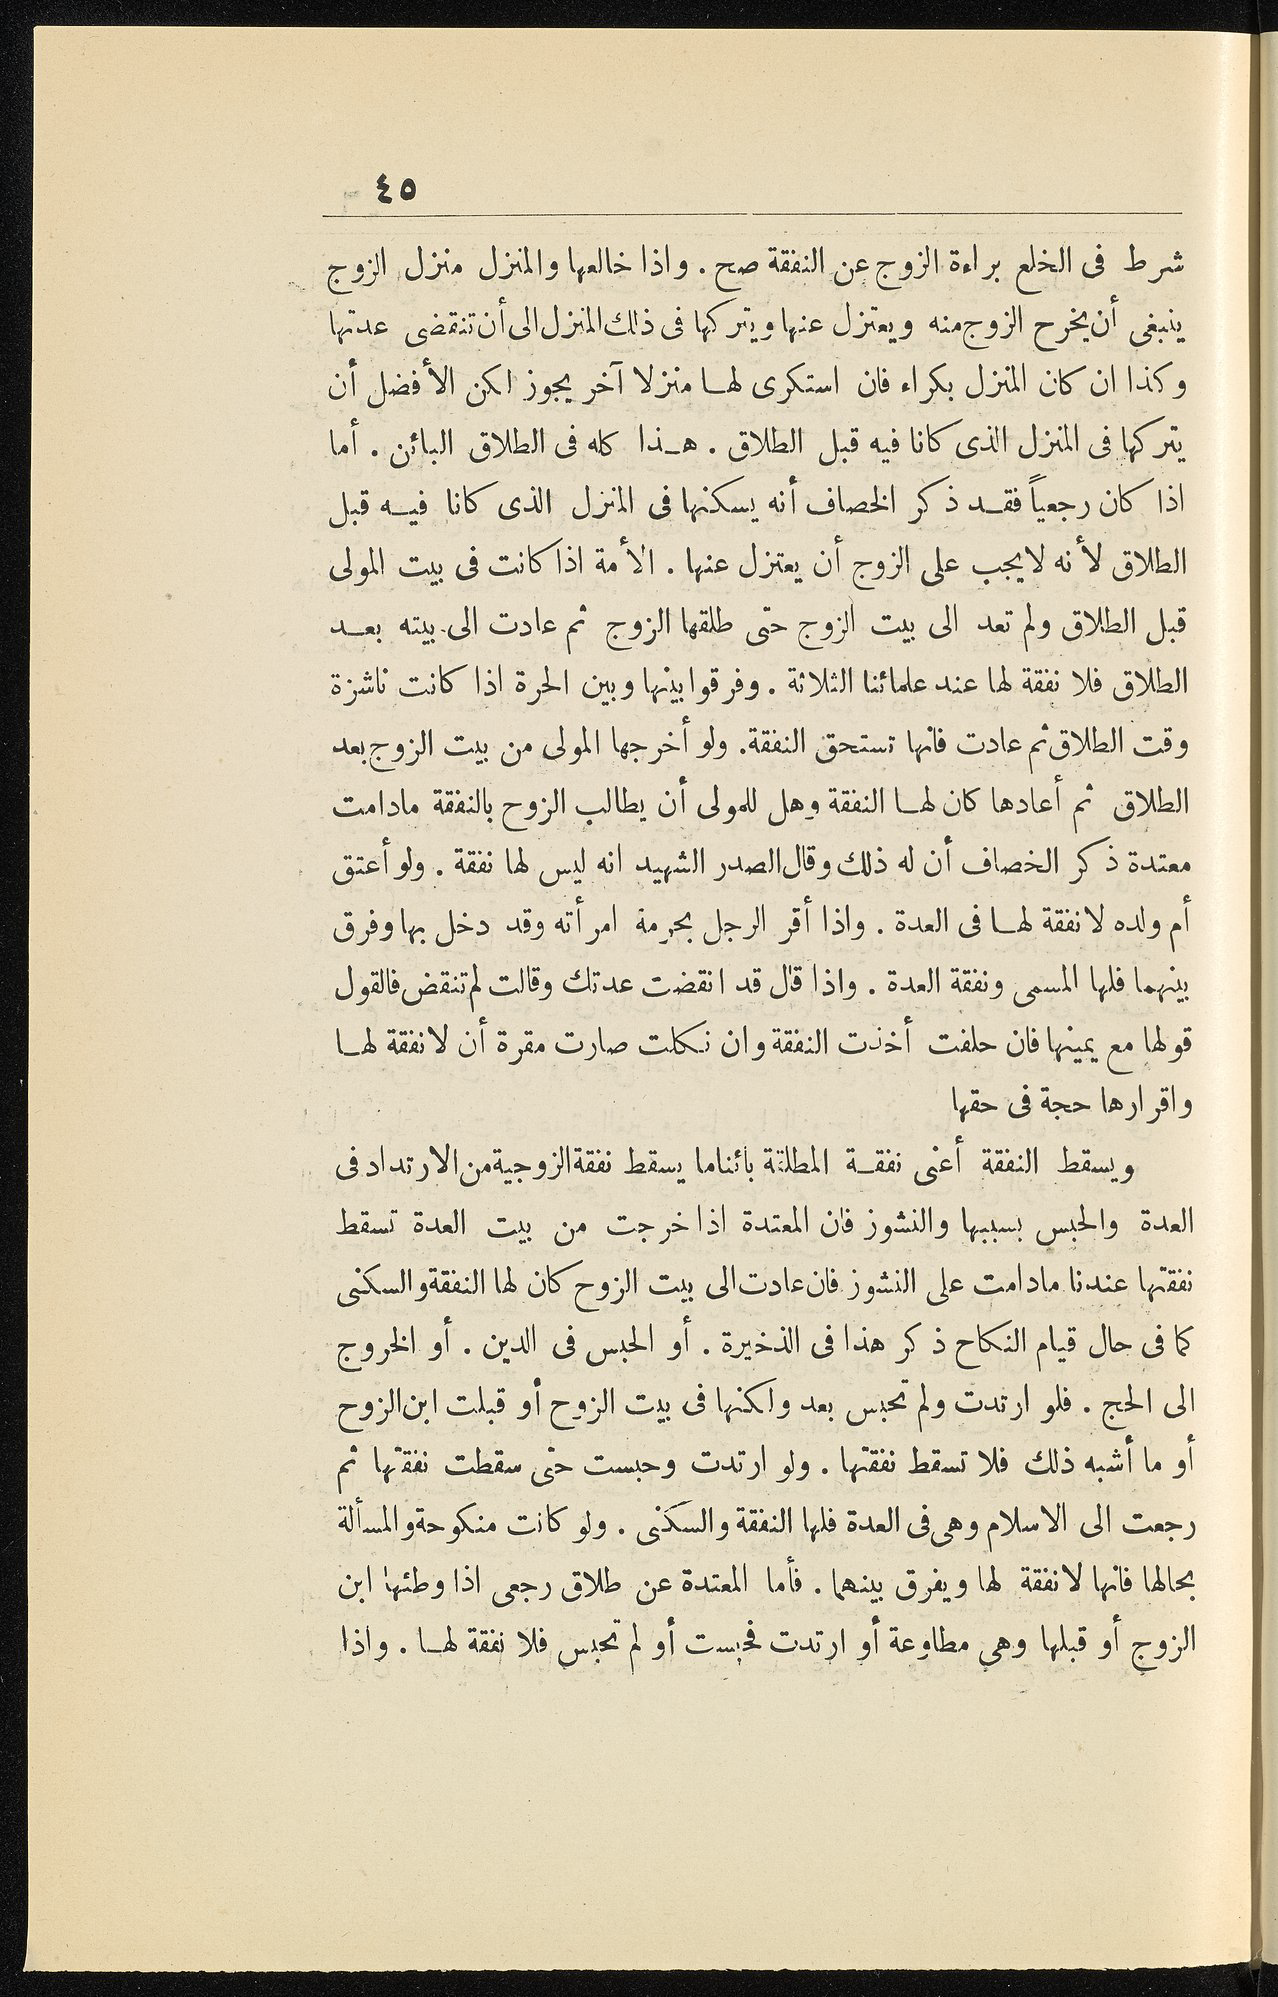 ٤٥
شرط فى الخلع براءة الزوج عن النفقة صح . واذا خالعها والمنزل منزل الزوج
ينبغى أن يخرج الزوج منه ويعتزل عنها ويتركها فى ذلك المنزل الى أن تنقضى عدتها
وكذا ان كان المنزل بكراء فان استكرى لها منزلا آخر يجوز لكن الأفضل أن
يتركها فى المنزل الذى كانا فيه قبل الطلاق . هذا كله فى الطلاق البائن . أما
اذا كان رجعياً فقد ذكر الخصاف أنه يسكنها فى المنزل الذى كانا فيه قبل
الطلاق لأنه لايجب على الزوج أن يعتزل عنها . الأمة اذا كانت فى بيت المولى
قبل الطلاق ولم تعد الى بيت الزوج حتى طلقها الزوج ثم عادت الى بيته بعد
الطلاق فلا نفقة لها عند علمائنا الثلاثة . وفرقوا بينها وبين الحرة اذا كانت ناشزة
وقت الطلاق ثم عادت فانها تستحق النفقة. ولو أخرجها المولى من بيت الزوج بعد
الطلاق ثم أعادها كان لها النفقة وهل للمولى أن يطالب الزوج بالنفقة مادامت
معتدة ذكر الخصاف أن له ذلك وقال الصدر الشهيد انه ليس لها نفقة . ولو أعتق
أم ولده لا نفقة لها فى العدة . واذا أقر الرجل بحرمة امرأته وقد دخل بها وفرق
بينهما فلها المسمى ونفقة العدة . واذا قال قد انقضت عدتك وقالت لم تنقض فالقول
قولها مع يمينها فان حلفت أخذت النفقة وان نكلت صارت مقرة أن لا نفقة لها
واقرارها حجة فى حقها
ويسقط النفقة أعنى نفقة المطلقة بائنا ما يسقط نفقة الزوجية من الارتداد فى
العدة والحبس بسببها والنشوز فان المعتدة اذا خرجت من بيت العدة تسقط
نفقتها عندنا مادامت على النشوز فان عادت الى بيت الزوج كان لها النفقة والسكنى
كما فى حال قيام النكاح ذكر هذا فى الذخيرة . أو الحبس فى الدين . أو الخروج
الى الحج . فلو ارتدت ولم تحبس بعد ولكنها فى بيت الزوج أو قبلت ابن الزوج
أو ما أشبه ذلك فلا تسقط نفقتها . ولو ارتدت وحبست حتى سقطت نفقتها ثم
رجعت الى الاسلام وهى فى العدة فلها النفقة والسكنى . ولو كانت منكوحة والمسألة
بحالها فانها لا نفقة لها ويفرق بينهما . فأما المعتدة عن طلاق رجعى اذا وطئها ابن
الزوج أو قبلها وهى مطاوعة أو ارتدت فحبست أو لم تحبس فلا نفقة لها . واذا